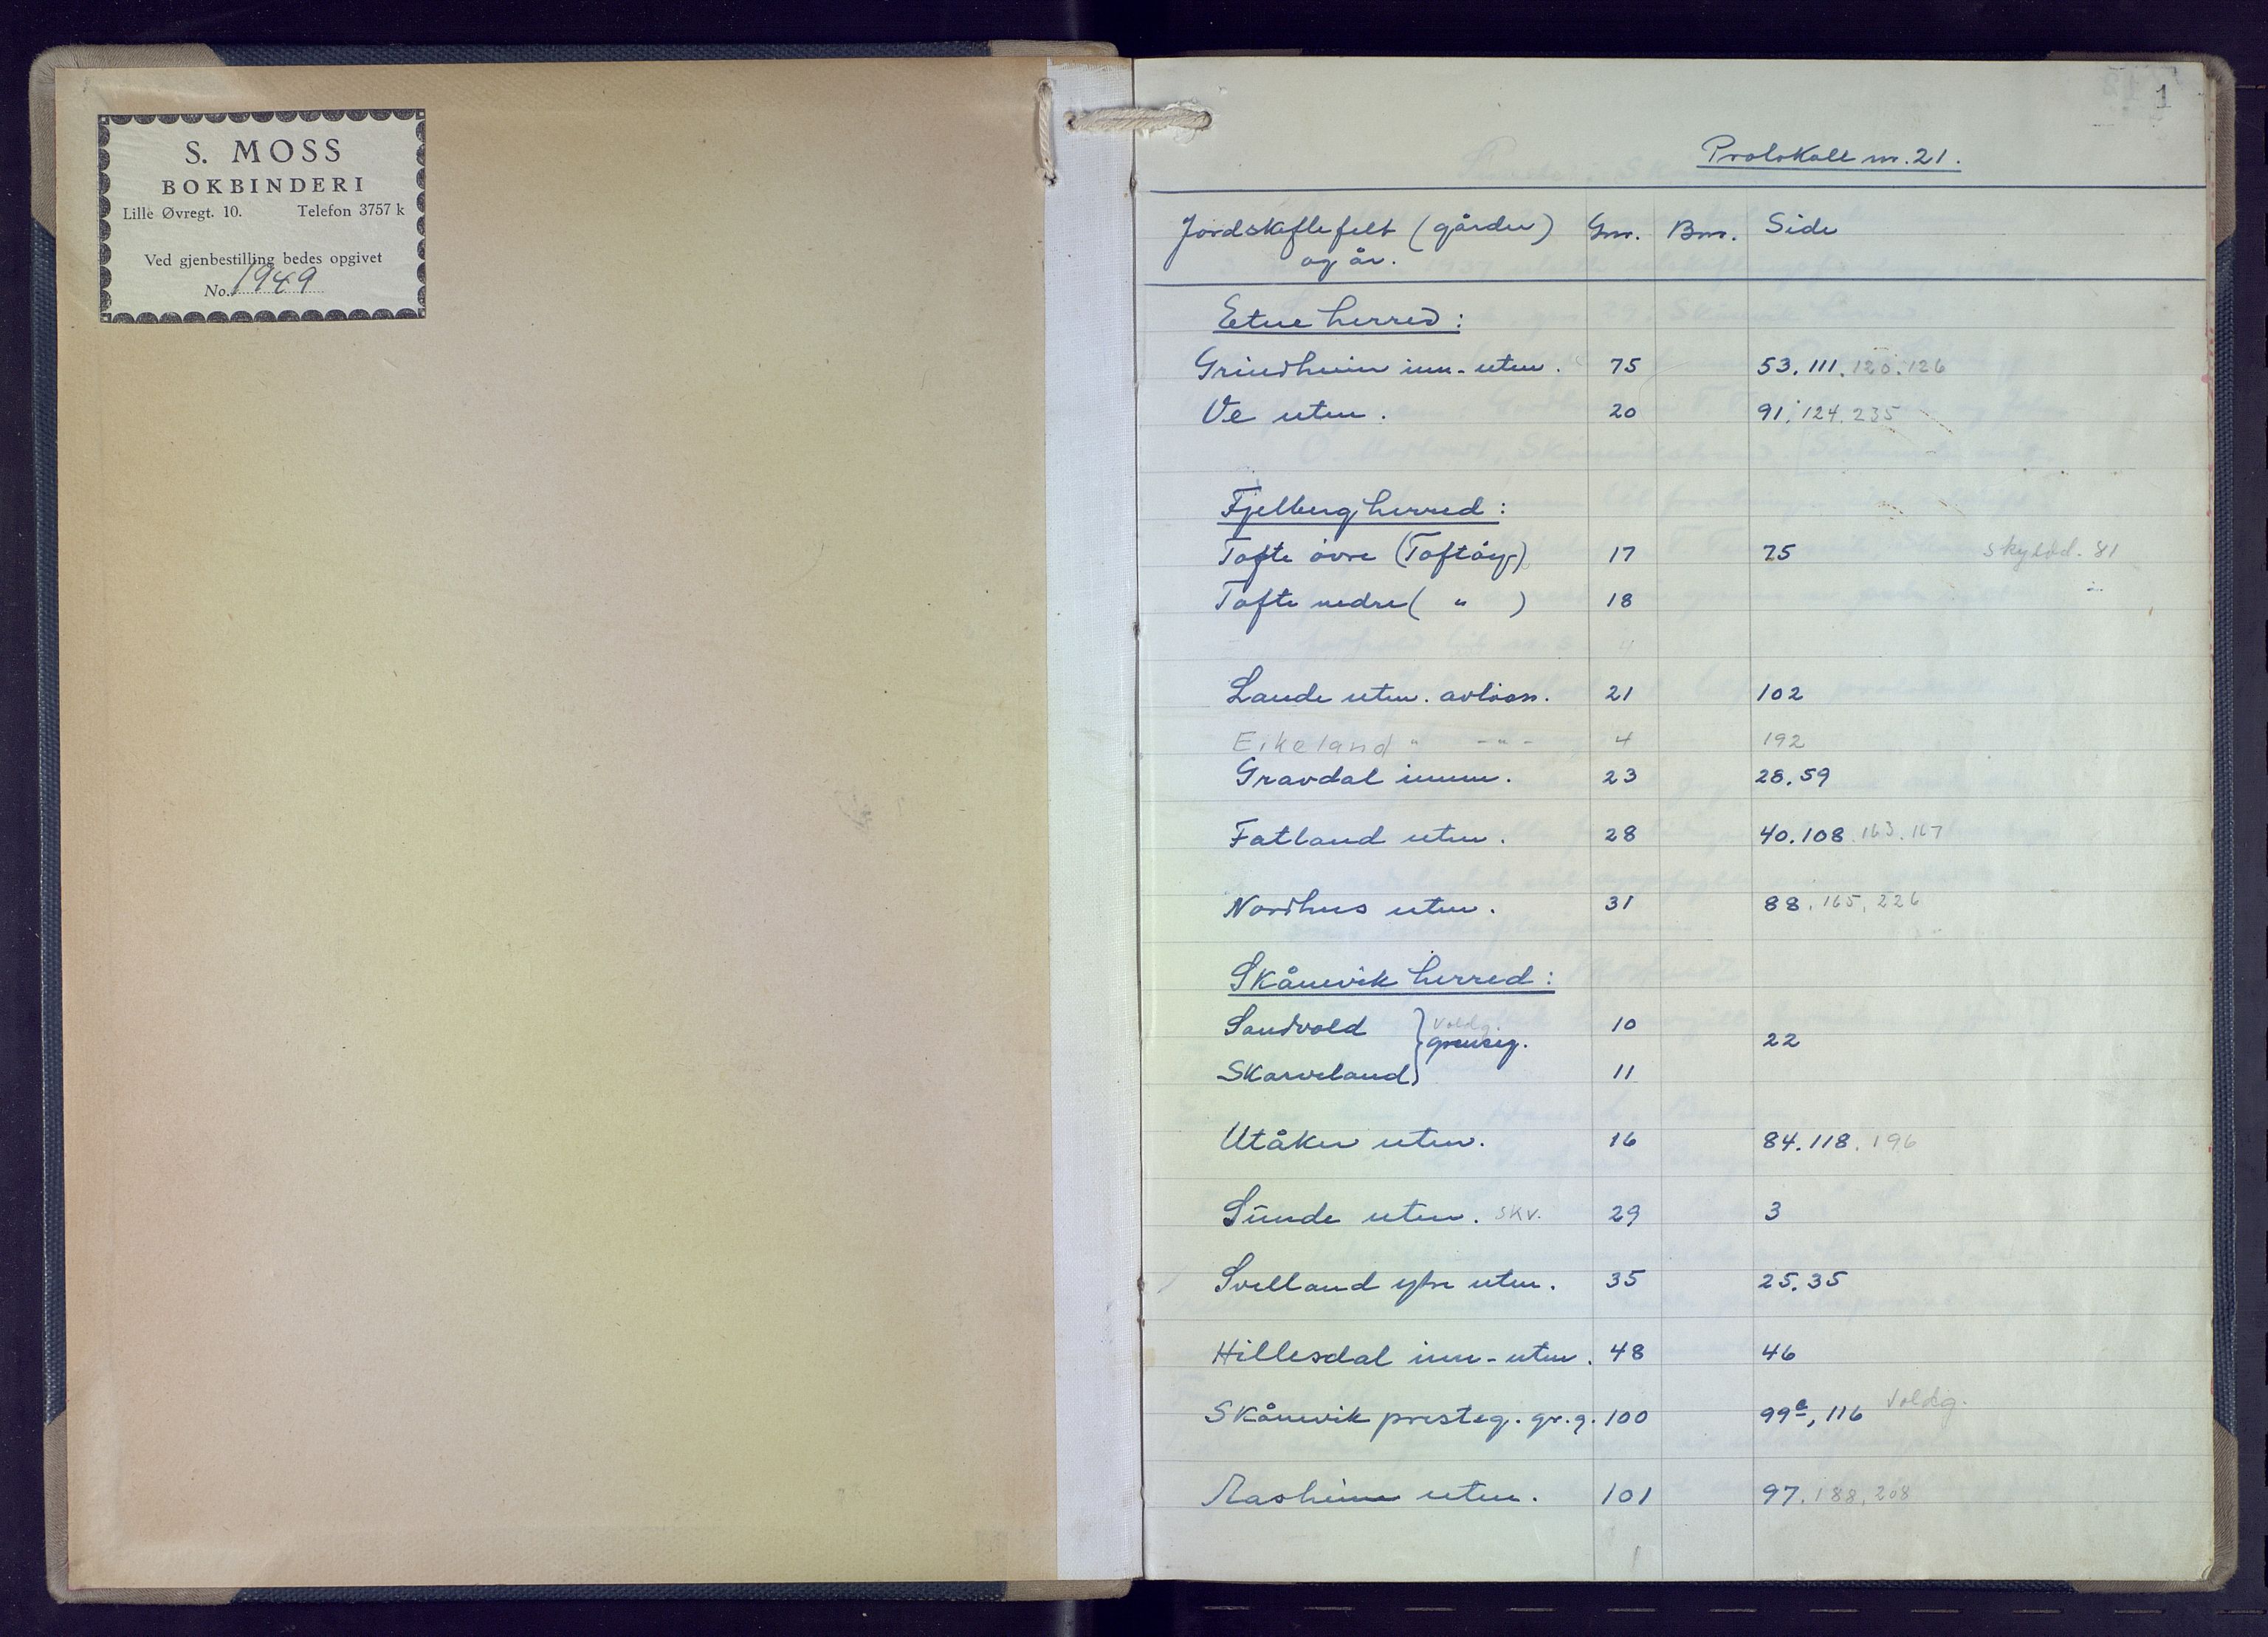 S. MOSS
BOKBINDERI
Lille Øvregt. 10. Telefon 3757 k
Ved gjenbestilling bedes opgivet
No. 1949
1
Protokoll nr. 21.
Jordskiftefelt (gårder) Gnr. Bnr. Side
og år.
Etne herred:
Grindheim inn-utm. 75 53. 111. 120. 126
Ve utm. 20 91. 124. 235
Fjelberg herred:
Tofte övre (Toftöy) 17 75 skyldd. 81
Tofte nedre ( " ) 18
Lande utm. avlösn. 21 102
Eikeland " -"- 4 192
Gravdal innm. 23 28. 59
Fatland utm. 28 40. 108. 163. 167
Nordhus utm. 31 88. 165. 226
Skånevik herred:
Sandvold } Voldg. 10
grenseg. 22
Skarveland 11
Utåker utm. 16 84. 118. 196
Sunde utm. skv. 29 3
Svelland ytre utm. 35 25. 35
Hillesdal inn-utm. 48 46
Skånevik presteg. gr.g. 100 99a, 116 Voldg.
Aasheim utm. 101 97. 188. 208